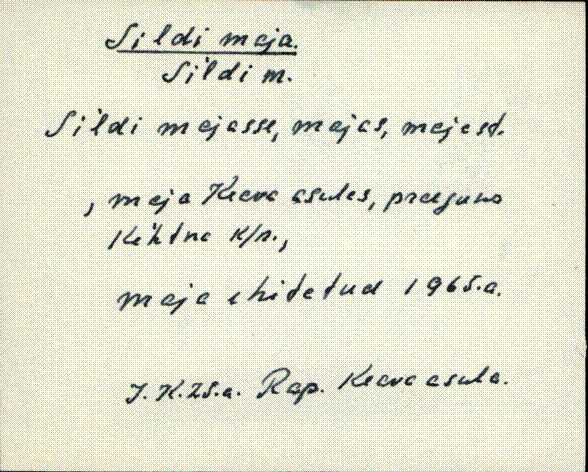 Sildi maja.
Si`ldi m.
Si`ldi majasse, majas, majast.
, maja Keava asulas, praegune
Ke`htna k/n.,
maja ehitatud 1965.a.
J. K. 25.a. Rap. Keava asula.